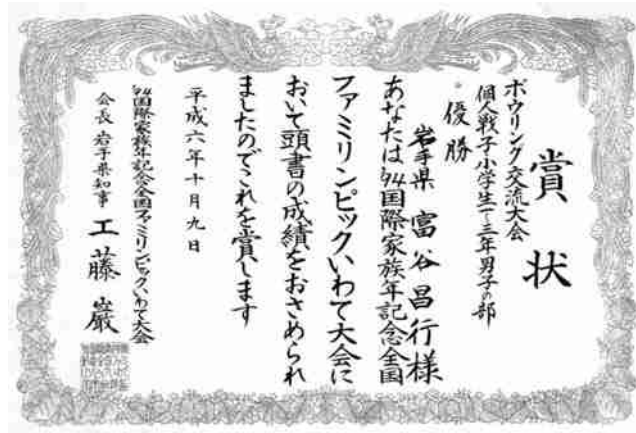 賞状
ボウリング交流大会
個人戦子小学生一~三年男子の部
優勝
岩手県 富谷昌行様
あなたは'94国際家族年記念全国
ファミリンピックいわて大会に
おいて頭書の成績をおさめられ
ましたのでこれを賞します
平成六年十月九日
'94国際家族年記念全国ファミリンピックいわて大会
会長 岩手県知事 工藤巖